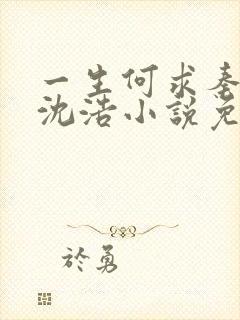 一生何求秦
沈浩小說免
於勇